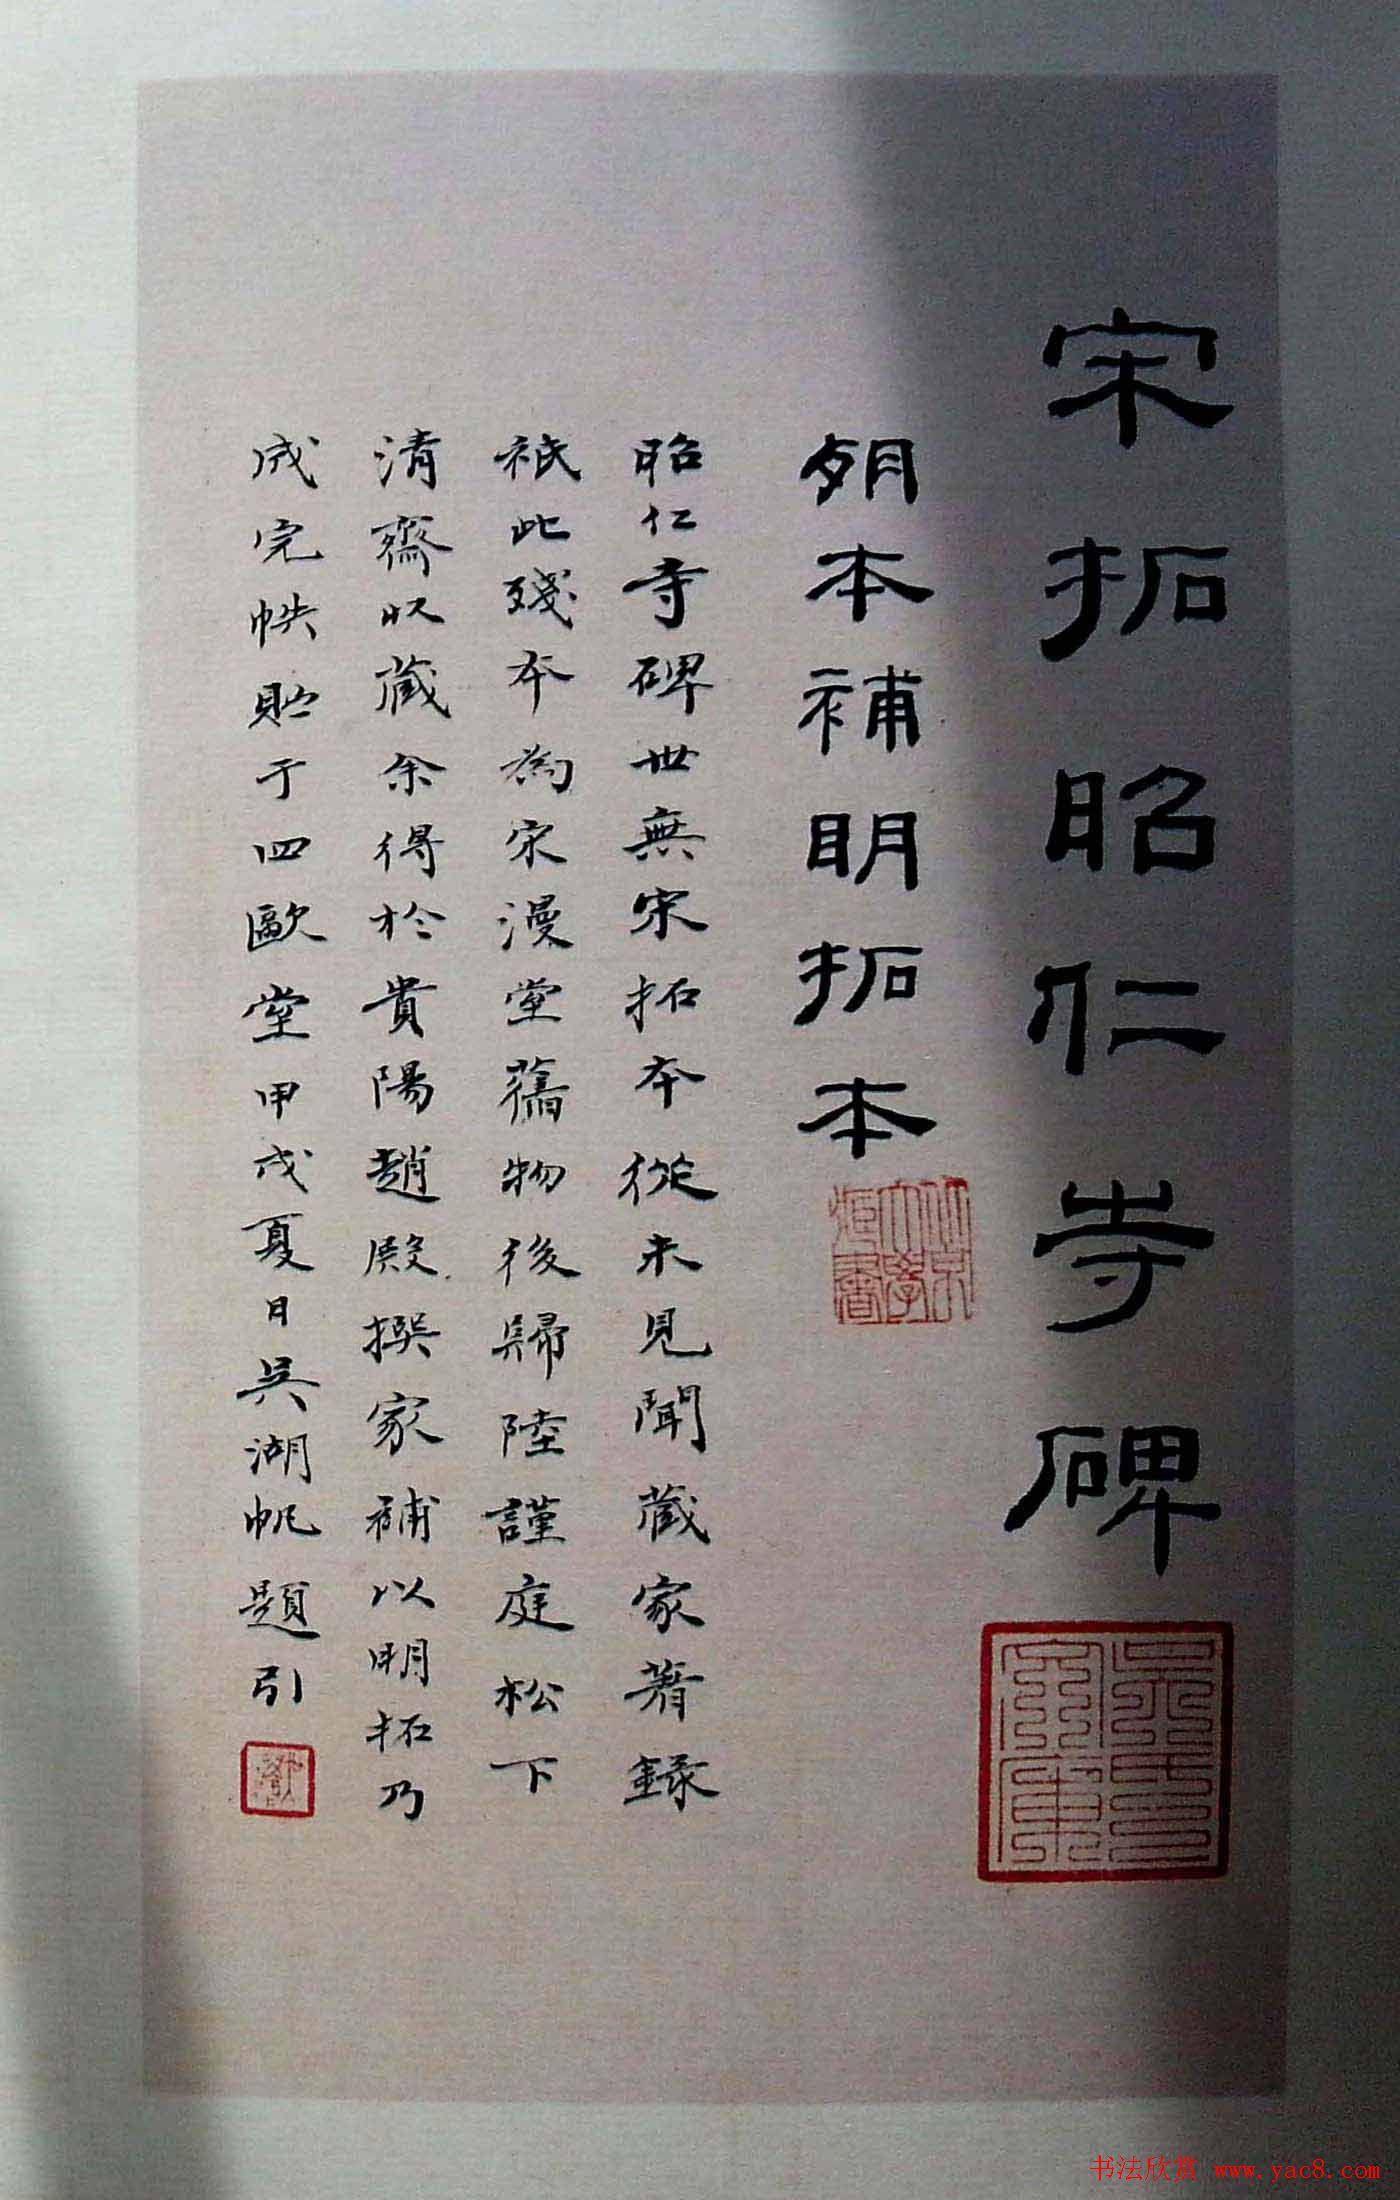 宋拓昭仁寺碑
本補明拓本
昭仁寺碑世無宋拓本從未見聞藏家著錄
祗此殘本為宋漫堂舊物後歸陸謹庭松下
清齋收藏余得於貴陽趙殿撰家補以明拓乃
成完帙貯于四歐堂甲戌夏日吳湖帆題引
书法欣赏 www.yac8.com